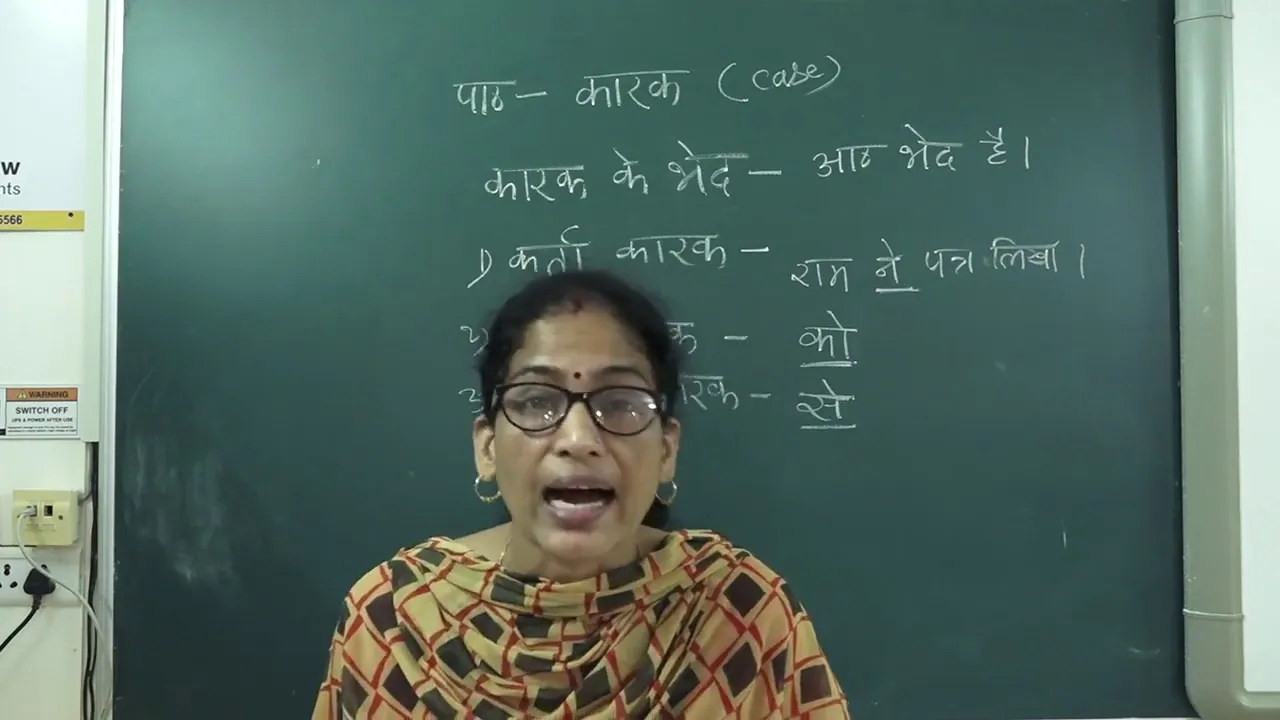 पाठ - कारक (case)
कारक के भेद - आठ भेद है।
1) कर्ता कारक - राम ने पत्र लिखा।
2) क - को
3) ारक - से
W
nts
5566
WARNING
SWITCH OFF
UPS & POWER AFTER USE